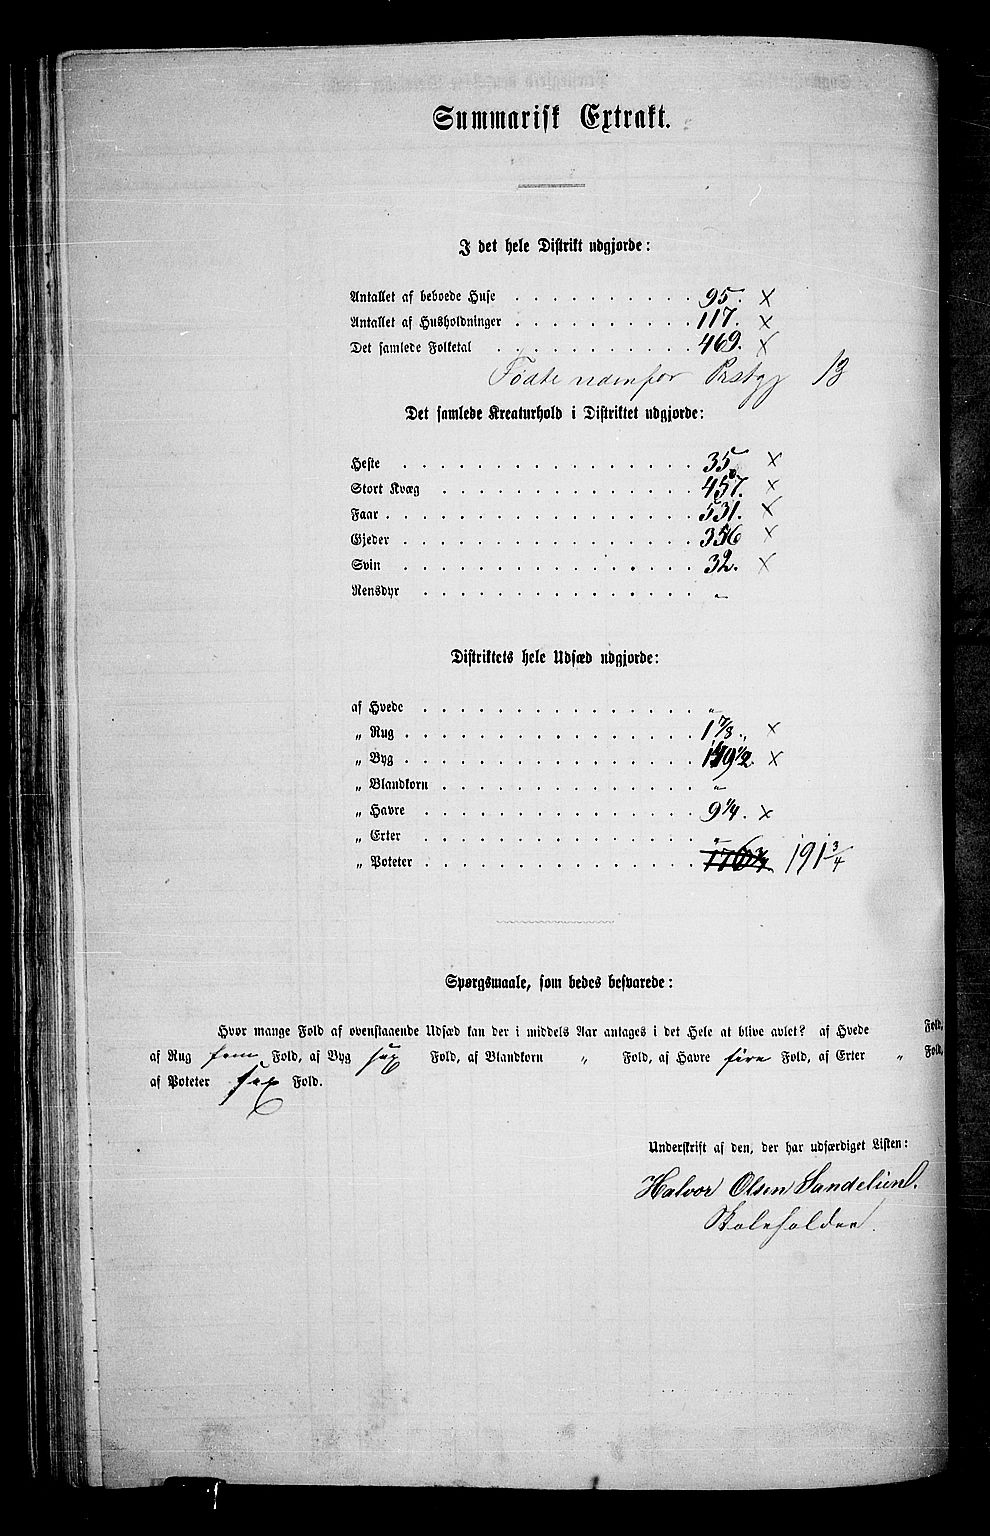 Summarisk Extrakt.
I det hele Distrikt udgjorde:
Antallet af beboede Huse . . . . . . . . . . 95. x
Antallet af Husholdninger . . . . . . . . . . 117. x
Det samlede Folketal . . . . . . . . . . . 469. x
Fødte udenfor Prstgj 13
Det samlede Kreaturhold i Distriktet udgjorde:
Heste . . . . . . . . . . . . . . . . 35 x
Stort Kvæg . . . . . . . . . . . . . . 457. x
Faar . . . . . . . . . . . . . . . . . 531. x
Gjeder . . . . . . . . . . . . . . . . 356 x
Svin . . . . . . . . . . . . . . . . 32. x
Rensdyr . . . . . . . . . . . . . . . „
Distriktets hele Udsæd udgjorde:
af Hvede . . . . . . . . . . . . . . . „
„ Rug . . . . . . . . . . . . . . . . 1 7/8 „ x
„ Byg . . . . . . . . . . . . . . . . x
„ Blandkorn . . . . . . . . . . . . . . „
„ Havre . . . . . . . . . . . . . . . 9 1/4. x
„ Erter . . . . . . . . . . . . . . . „
„ Poteter . . . . . . . . . . . . . . 176 3/4. 191 3/4
Spørgsmaale, som bedes besvarede:
Hvor mange Fold af ovenstaaende Udsæd kan der i middels Aar antages i det Hele at blive avlet? af Hvede Fold,
af Rug fem Fold, af Byg sex Fold, af Blandkorn „ Fold, af Havre fire Fold, af Erter „ Fold,
af Poteter sex Fold.
Underskrift af den, der har udfærdiget Listen:
Halvor Olsen Sandelund.
Skoleholder.